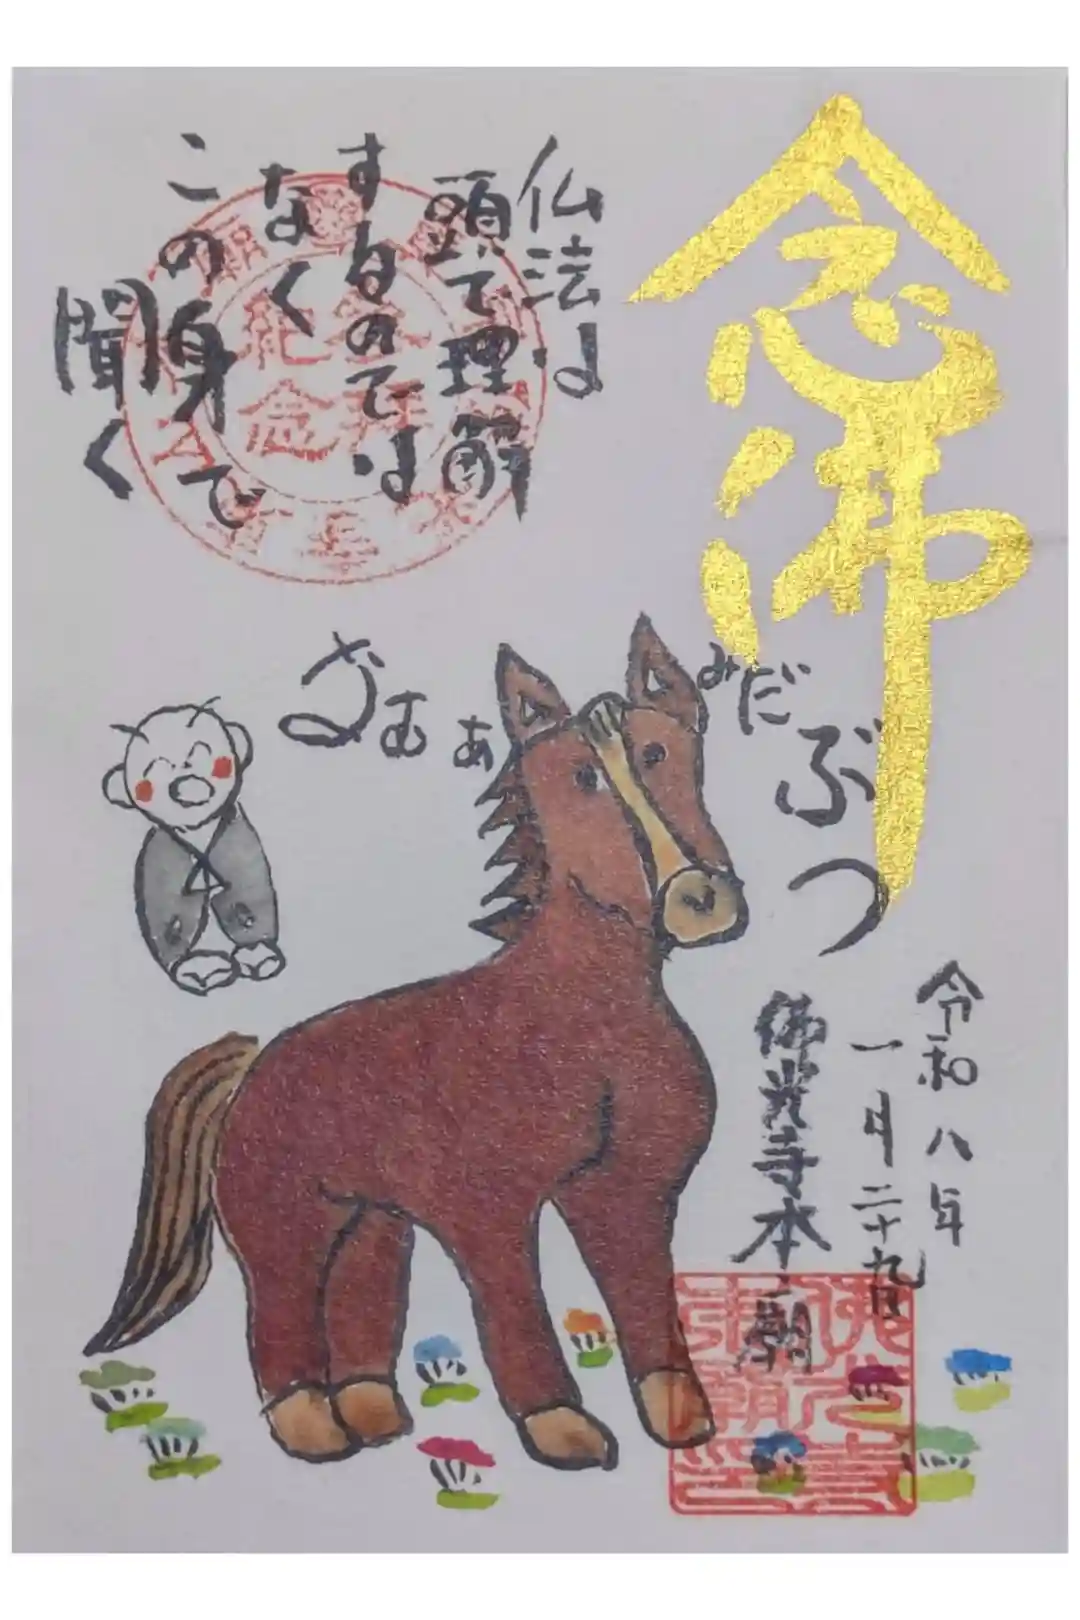 念佛
仏法は
頭で理解
するのでは
なく
この身で
聞く
なむあみだぶつ
令和八年
一月二十九日
佛光寺本廟